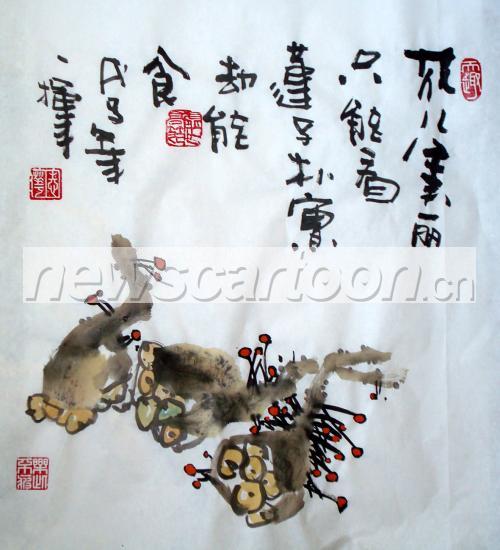 花儿美丽
只能看
蓬子朴實
却能
食
戊子年
newscartoon.cn